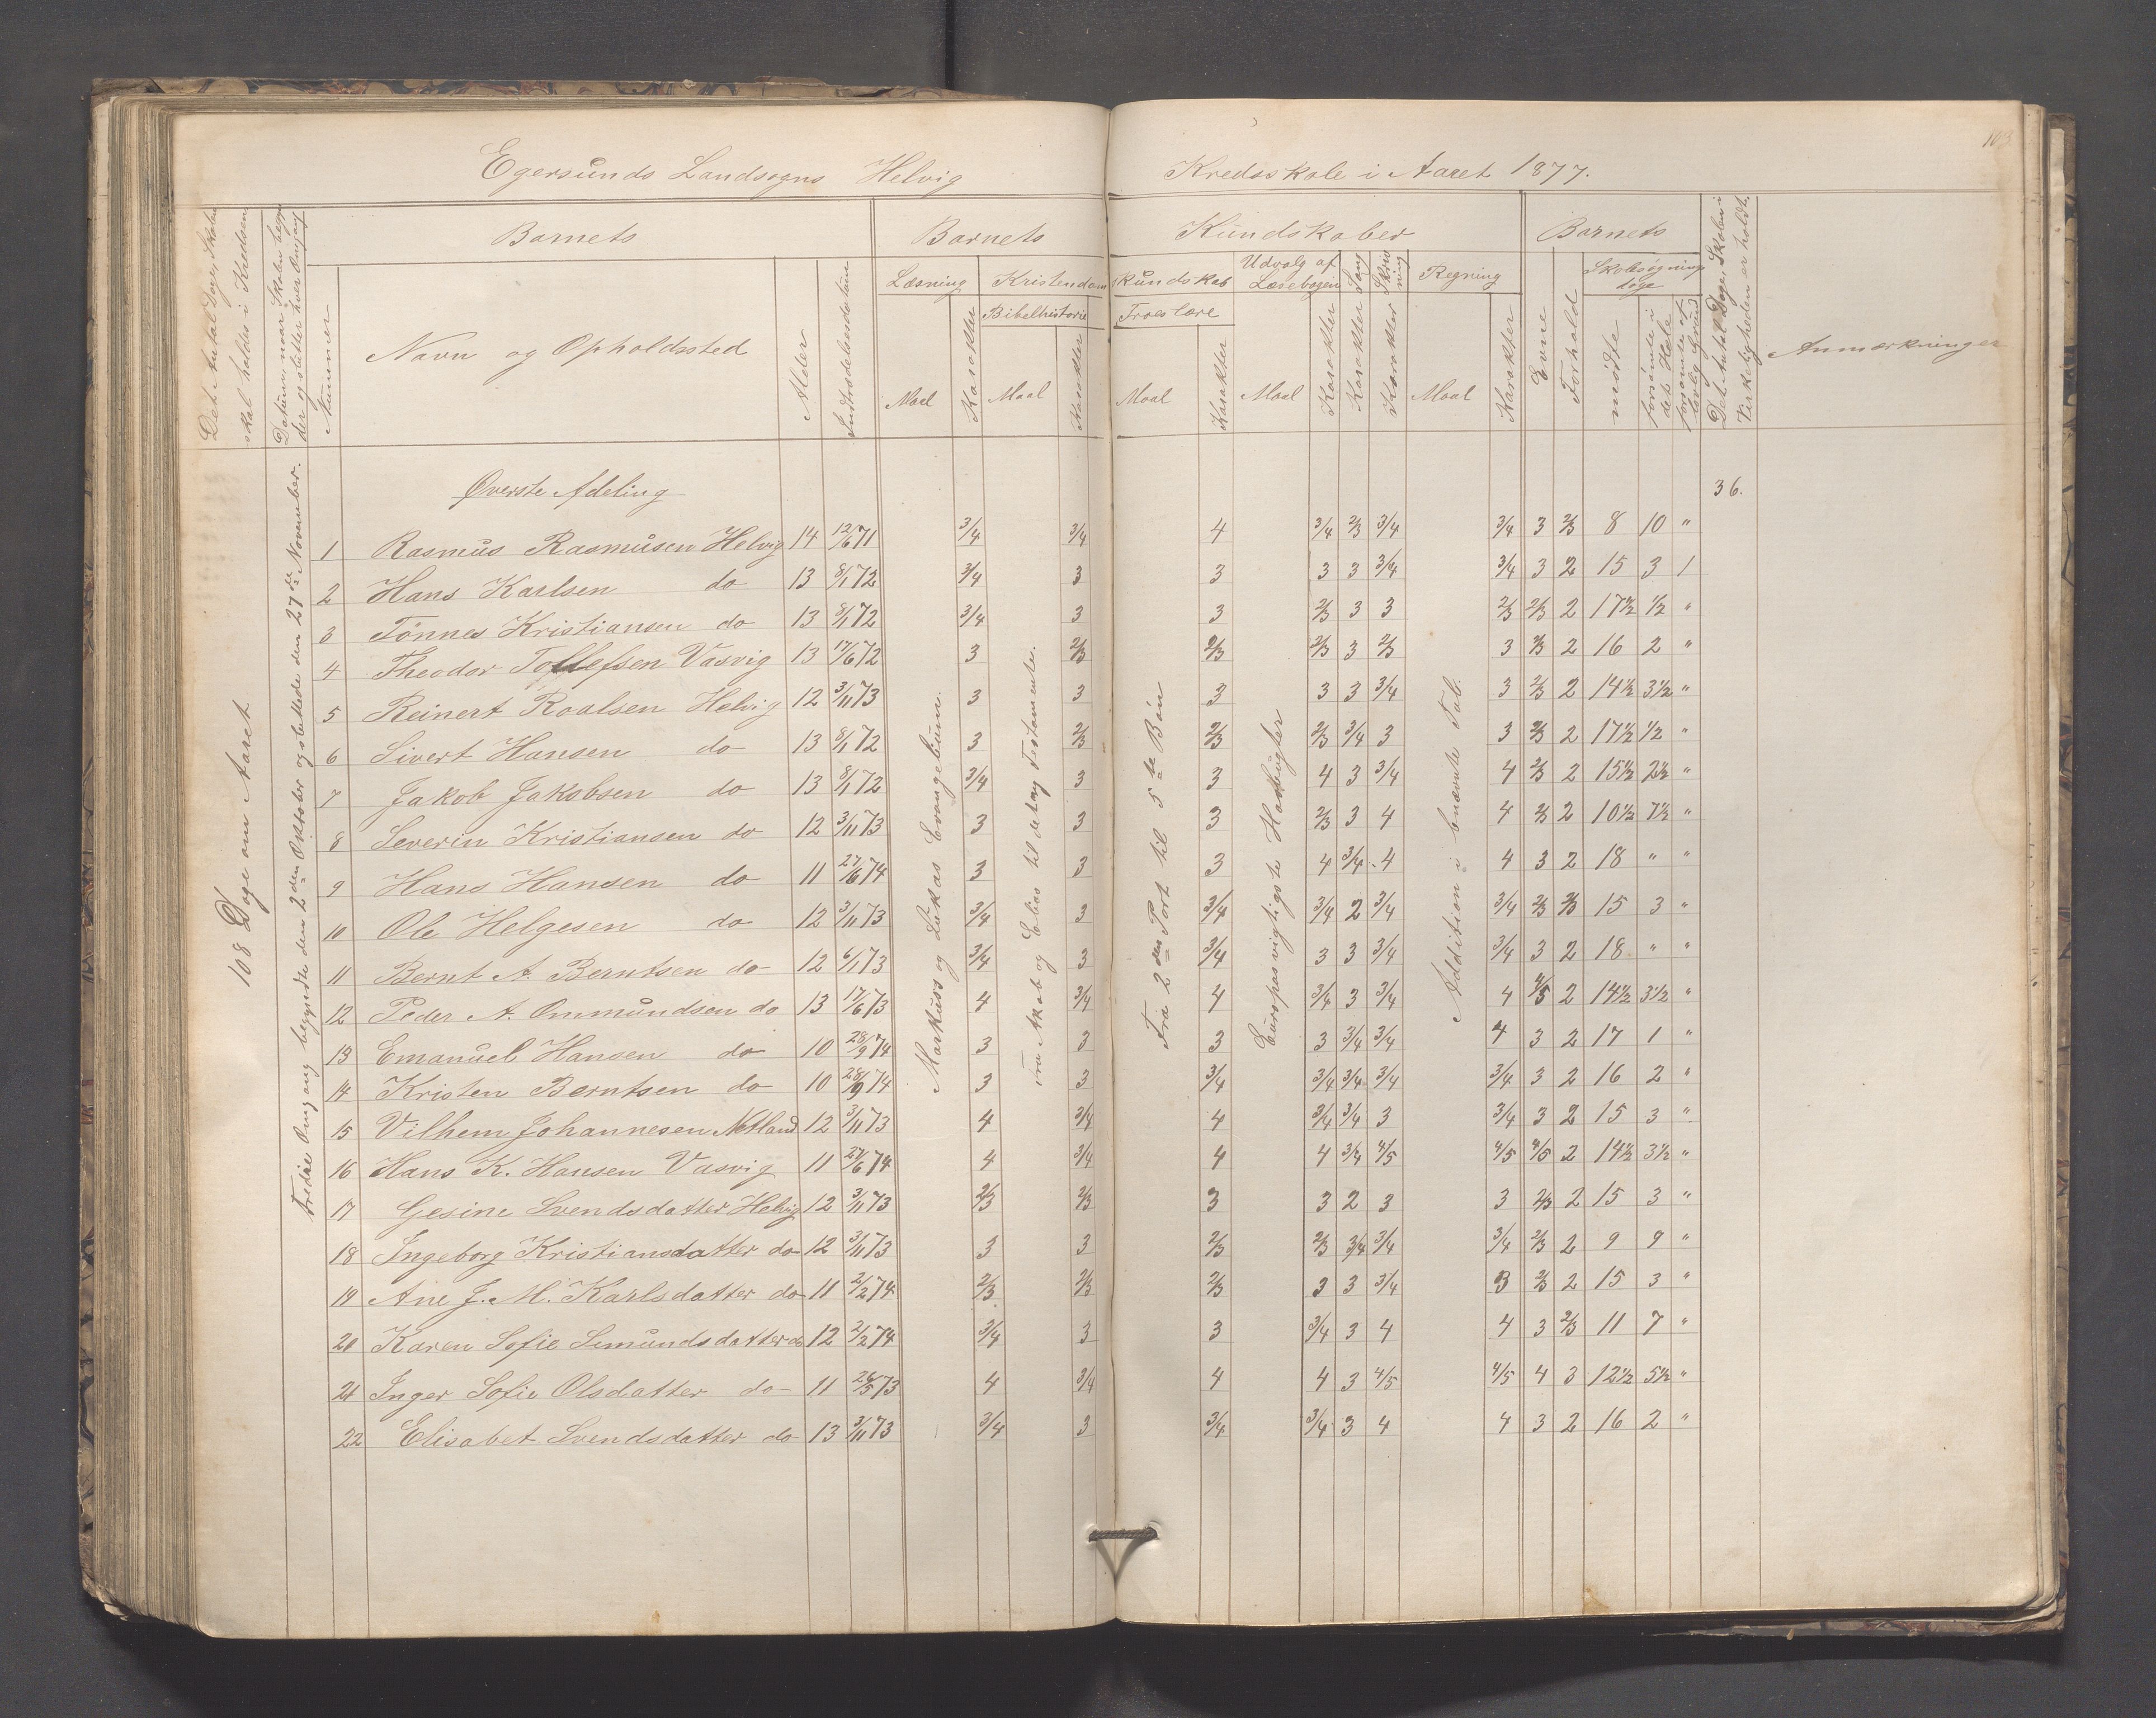 103
Egersunds Landsogns Helvig Kredsskole i Aaret 1877.
Det Antal Dage, Skolen skal holdes i Kredsen
Datum, naar Skolen begynder og slutter hver Omgang
Barnets
Nummer
Navn og Opholdssted
Alder
Indtrædelsesdatum
Barnets Kundskaber
Læsning
Maal
Karakter
Kristendomskundskab
Bibelhistorie
Maal
Karakter
Troeslære
Maal
Karakter
Udvalg af Læsebogen
Maal
Karakter
Sang
Karakter
Skrivning
Karakter
Regning
Maal
Karakter
Barnets
Evne
Forhold
Skolesøgningsdage
mødte
forsømte i det Hele
forsømte af lovlig Grund
Det Antal Dage, Skolen i Virkeligheden er holdt.
Anmærkninger
108 Dage om Aaret
tredie Omgang begyndte den 2den Oktober og sluttede den 27de November.
Markus's og Lukas Evangelium.
Fra Akab og Elias til det ny Testamente.
Fra 2den Part til 5te Bøn
Europas vigtigste
Addition i benævnte Tal.
Øverste Afdeling 36.
1 Rasmus Rasmusen Helvig 14 12/6 71 3/4 3/4 4 3/4 2/3 3/4 3/4 3 2/3 8 10 "
2 Hans Karlsen do 13 8/1 72 3/4 3 3 3 3 3/4 3/4 3 2 15 3 1
3 Tønnes Kristiansen do 13 8/1 72 3/4 3 3 2/3 3 3 2/3 2/3 2 17 1/2 1/2 "
4 Theodor Tollefsen Vasvig 13 17/6 72 3 2/3 2/3 2/3 3 2/3 3 2/3 2 16 2 "
5 Reinert Roalsen Helvig 12 3/11 73 3 3 3 3 3 3/4 3 2/3 2 14 1/2 3 1/2 "
6 Sivert Hansen do 13 8/1 72 3 2/3 2/3 2/3 3/4 3 3 2/3 2 17 1/2 1/2 "
7 Jakob Jakobsen do 13 8/1 72 3/4 3 3 4 3 3/4 4 2/3 2 15 1/2 2 1/2 "
8 Severin Kristiansen do 12 3/11 73 3 3 3 2/3 3 4 4 2/3 2 10 1/2 7 1/2 "
9 Hans Hansen do 11 27/6 74 3 3 3 4 3/4 4 4 3 2 18 " "
10 Ole Helgesen do 12 3/11 73 3/4 3 3/4 3/4 2 3/4 3/4 2/3 2/3 15 3 "
11 Bernt A. Berntsen do 12 6/1 73 3/4 3 3/4 3 3 3/4 3/4 3 2 18 " "
12 Peder A. Ommundsen do 13 17/6 73 4 3/4 4 3/4 3 3/4 4 4/5 2 14 1/2 3 1/2 "
13 Emanuel Hansen do 10 28/9 74 3 3 3 3 3/4 3/4 4 3 2 17 1 "
14 Kristen Berntsen do 10 28/9 74 3 3 3/4 3/4 3/4 3/4 3/4 3 2 16 2 "
15 Vilhem Johannesen Netland 12 3/11 73 4 3/4 4 3/4 3/4 3 3/4 3 2 15 3 "
16 Hans K. Hansen Vasvig 11 27/6 74 4 3/4 4 4 3/4 4/5 4/5 4/5 2 14 1/2 3 1/2 "
17 Gesine Svendsdatter Helvig 12 3/11 73 2/3 2/3 3 3 2 3 3 2/3 2 15 3 "
18 Ingeborg Kristiansdatter do 12 3/11 73 3 3 2/3 2/3 3/4 3/4 3/4 2/3 2 9 9 "
19 Ane J. M. Karlsdatter do 11 2/2 74 2/3 2/3 2/3 3 3 3/4 3 2/3 2 15 3 "
20 Karen Sofie Semundsdatter do 12 2/2 74 3/4 3 3 3/4 3 4 4 3 2/3 11 7 "
21 Inger Sofie Olsdatter do 11 26/5 73 4 3/4 4 4 3 4/5 4/5 4 3 12 1/2 5 1/2 "
22 Elisabet Svendsdatter do 13 3/11 73 3/4 3 3/4 3/4 3 4 4 3 2 16 2 "